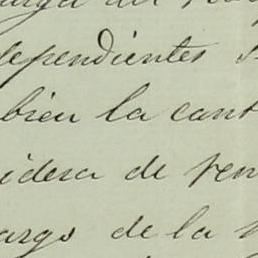 dependientes
bien la cant
idera de ren
argo de la